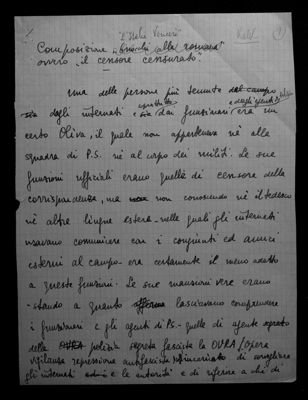 "Italia Venerè"
Kalk 1
Composizione "briscola alla romana"
ovvero "il censore censurato".
Una delle persone più temute dal campo
sia degli internati e sia dai funzionari e dagli agenti era un
certo Oliva, il quale non apparteneva nè alla
squadra di P.S. nè al corpo dei militi. Le sue
funzioni ufficiali erano quelle di censore della
corrispondenza, ma non conoscendo nè il tedesco
nè altre lingue estere nelle quali gli internati
usavano comunicare con i congiunti ed amici
esterni al campo era certamente il meno adatto
a queste funzioni. Le sue mansioni vere erano
- stando a quanto lasciavano comprendere
i funzionari e gli agenti di P.S. - quelle di agente segreto
della OVRA polizia segreta fascista la OVRA (opera
vigilanza repressione antifascismo) incaricato di sorvegliare
gli internati e le autorità e di riferire a chi di